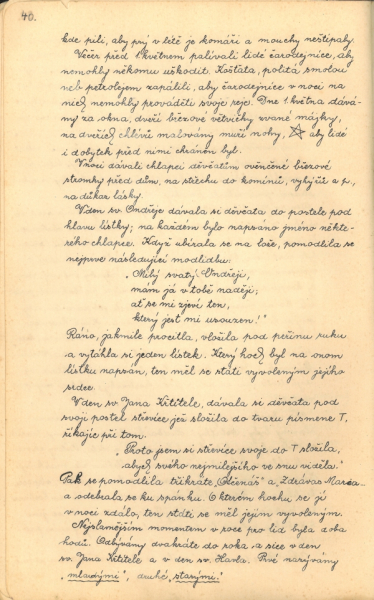 40.
kde pili, aby prý v létě je komáři a mouchy neštípaly.
Večer před 1. květnem palívali lidé čarodejnice, aby
nemohly někomu uškodit. Košťata, politá smolou
neb petrolejem zapálili, aby čarodejnice v noci na
nich nemohly prováděti svoje reje. Dne 1. května dává-
ny za okna, dveří březové větvičky zvané májky,
na dveřích chlévů malovány muří nohy, aby lidé
i dobytek před nimi chráněn byl.
V noci dávali chlapci děvčatům ověnčené březové
stromky před dům, na střechu do komínů, vykýřů a p.,
na důkaz lásky.
V den sv. Ondřeje dávala si děvčata do postele pod
hlavu lístky; na každém bylo napsáno jméno někte-
rého chlapce. Když ubírala se na lože, pomodlila se
nejprve následující modlidbu:
„Milý svatý Ondřeji,
mám já v tobě naději;
ať se mi zjeví ten,
který jest mi usouzen!"
Ráno, jakmile procitla, vložila pod peřinu ruku
a vytáhla si jeden lístek. Který hoch byl na onom
lístku napsán, ten měl se státi vyvoleným jejího
srdce.
V den sv. Jana Křtitele, dávala si děvčata pod
svoji postel střevíce jež složila do tvaru písmene T,
říkajíc při tom:
„Proto jsem si střevíce svoje do T složila,
abych svého nejmilejšího ve snu viděla."
Pak se pomodlila třikráte „Otčenáš" a „Zdrávas Maria"
a odebrala se ku spánku. O kterém hochu se jí
v noci zdálo, ten státi se měl jejím vyvoleným.
Nejslavnějším momentem v roce pro lid byla doba
hodů. Odbývány dvakráte do roka a sice v den
sv. Jana Křtitele a v den sv. Havla. Prvé nazývány
„mladými", druhé „starými".